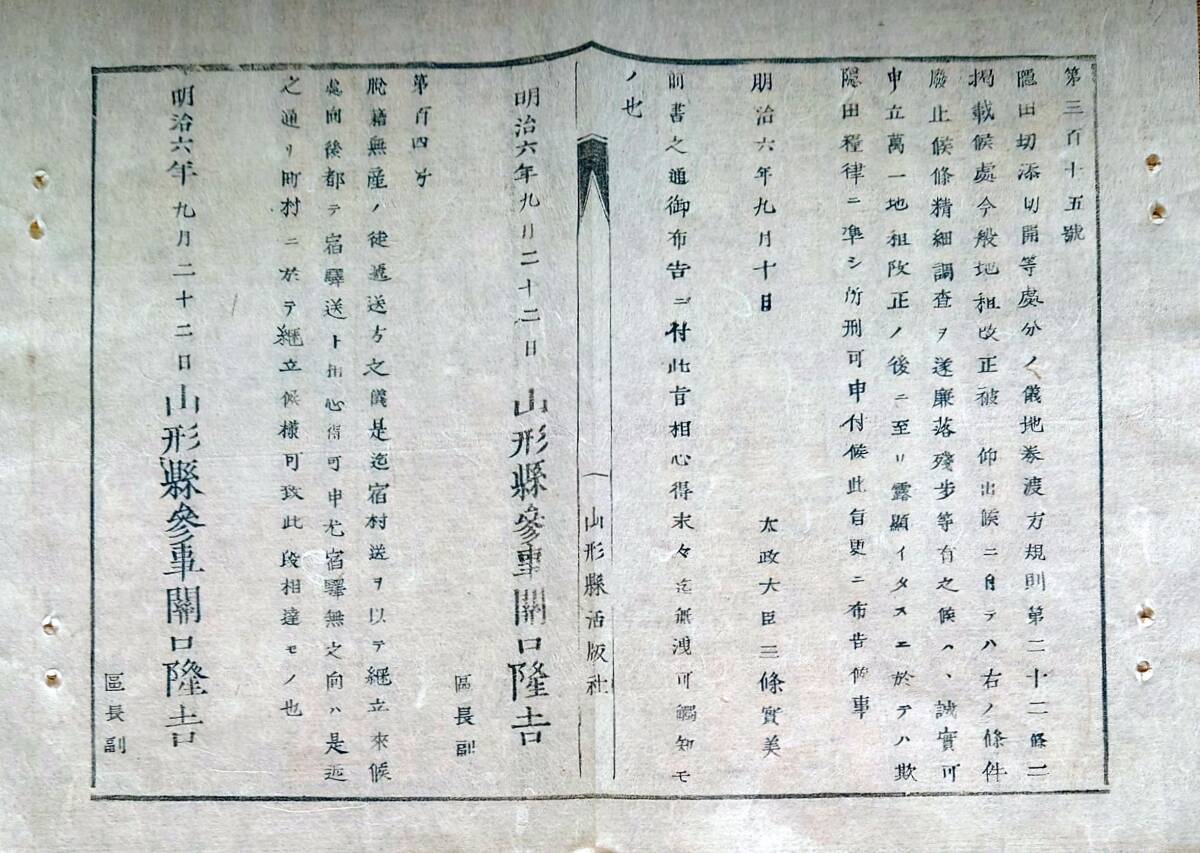 第三百十五號
隱田切添切開等處分ノ儀地券渡方規則第二十二條ニ
揭載候處今般地租改正被 仰出候ニ付テハ右ノ條件
廢止候條精細調査ヲ遂廉落殘步等有之候ハヽ誠實可
申立萬一地租改正ノ後ニ至リ露顯イタスニ於テハ欺
隱田糧律ニ準シ所刑可申付候此旨更ニ布告候事
明治六年九月十日
太政大臣三條實美
前書之通御布告ニ付此旨相心得末々迄無洩可觸知モ
ノ也
明治六年九月二十二日 山形縣參事關口隆吉
區長副
山形縣活版社
第百四号
脫籍無產ノ徒遞送方之儀是迄宿村送ヲ以テ繼立來候
處向後都テ宿驛送ト相心得可申尤宿驛無之向ハ是迄
之通リ町村ニ於テ繼立候樣可致此段相達モノ也
明治六年九月二十二日 山形縣參事關口隆吉
區長副